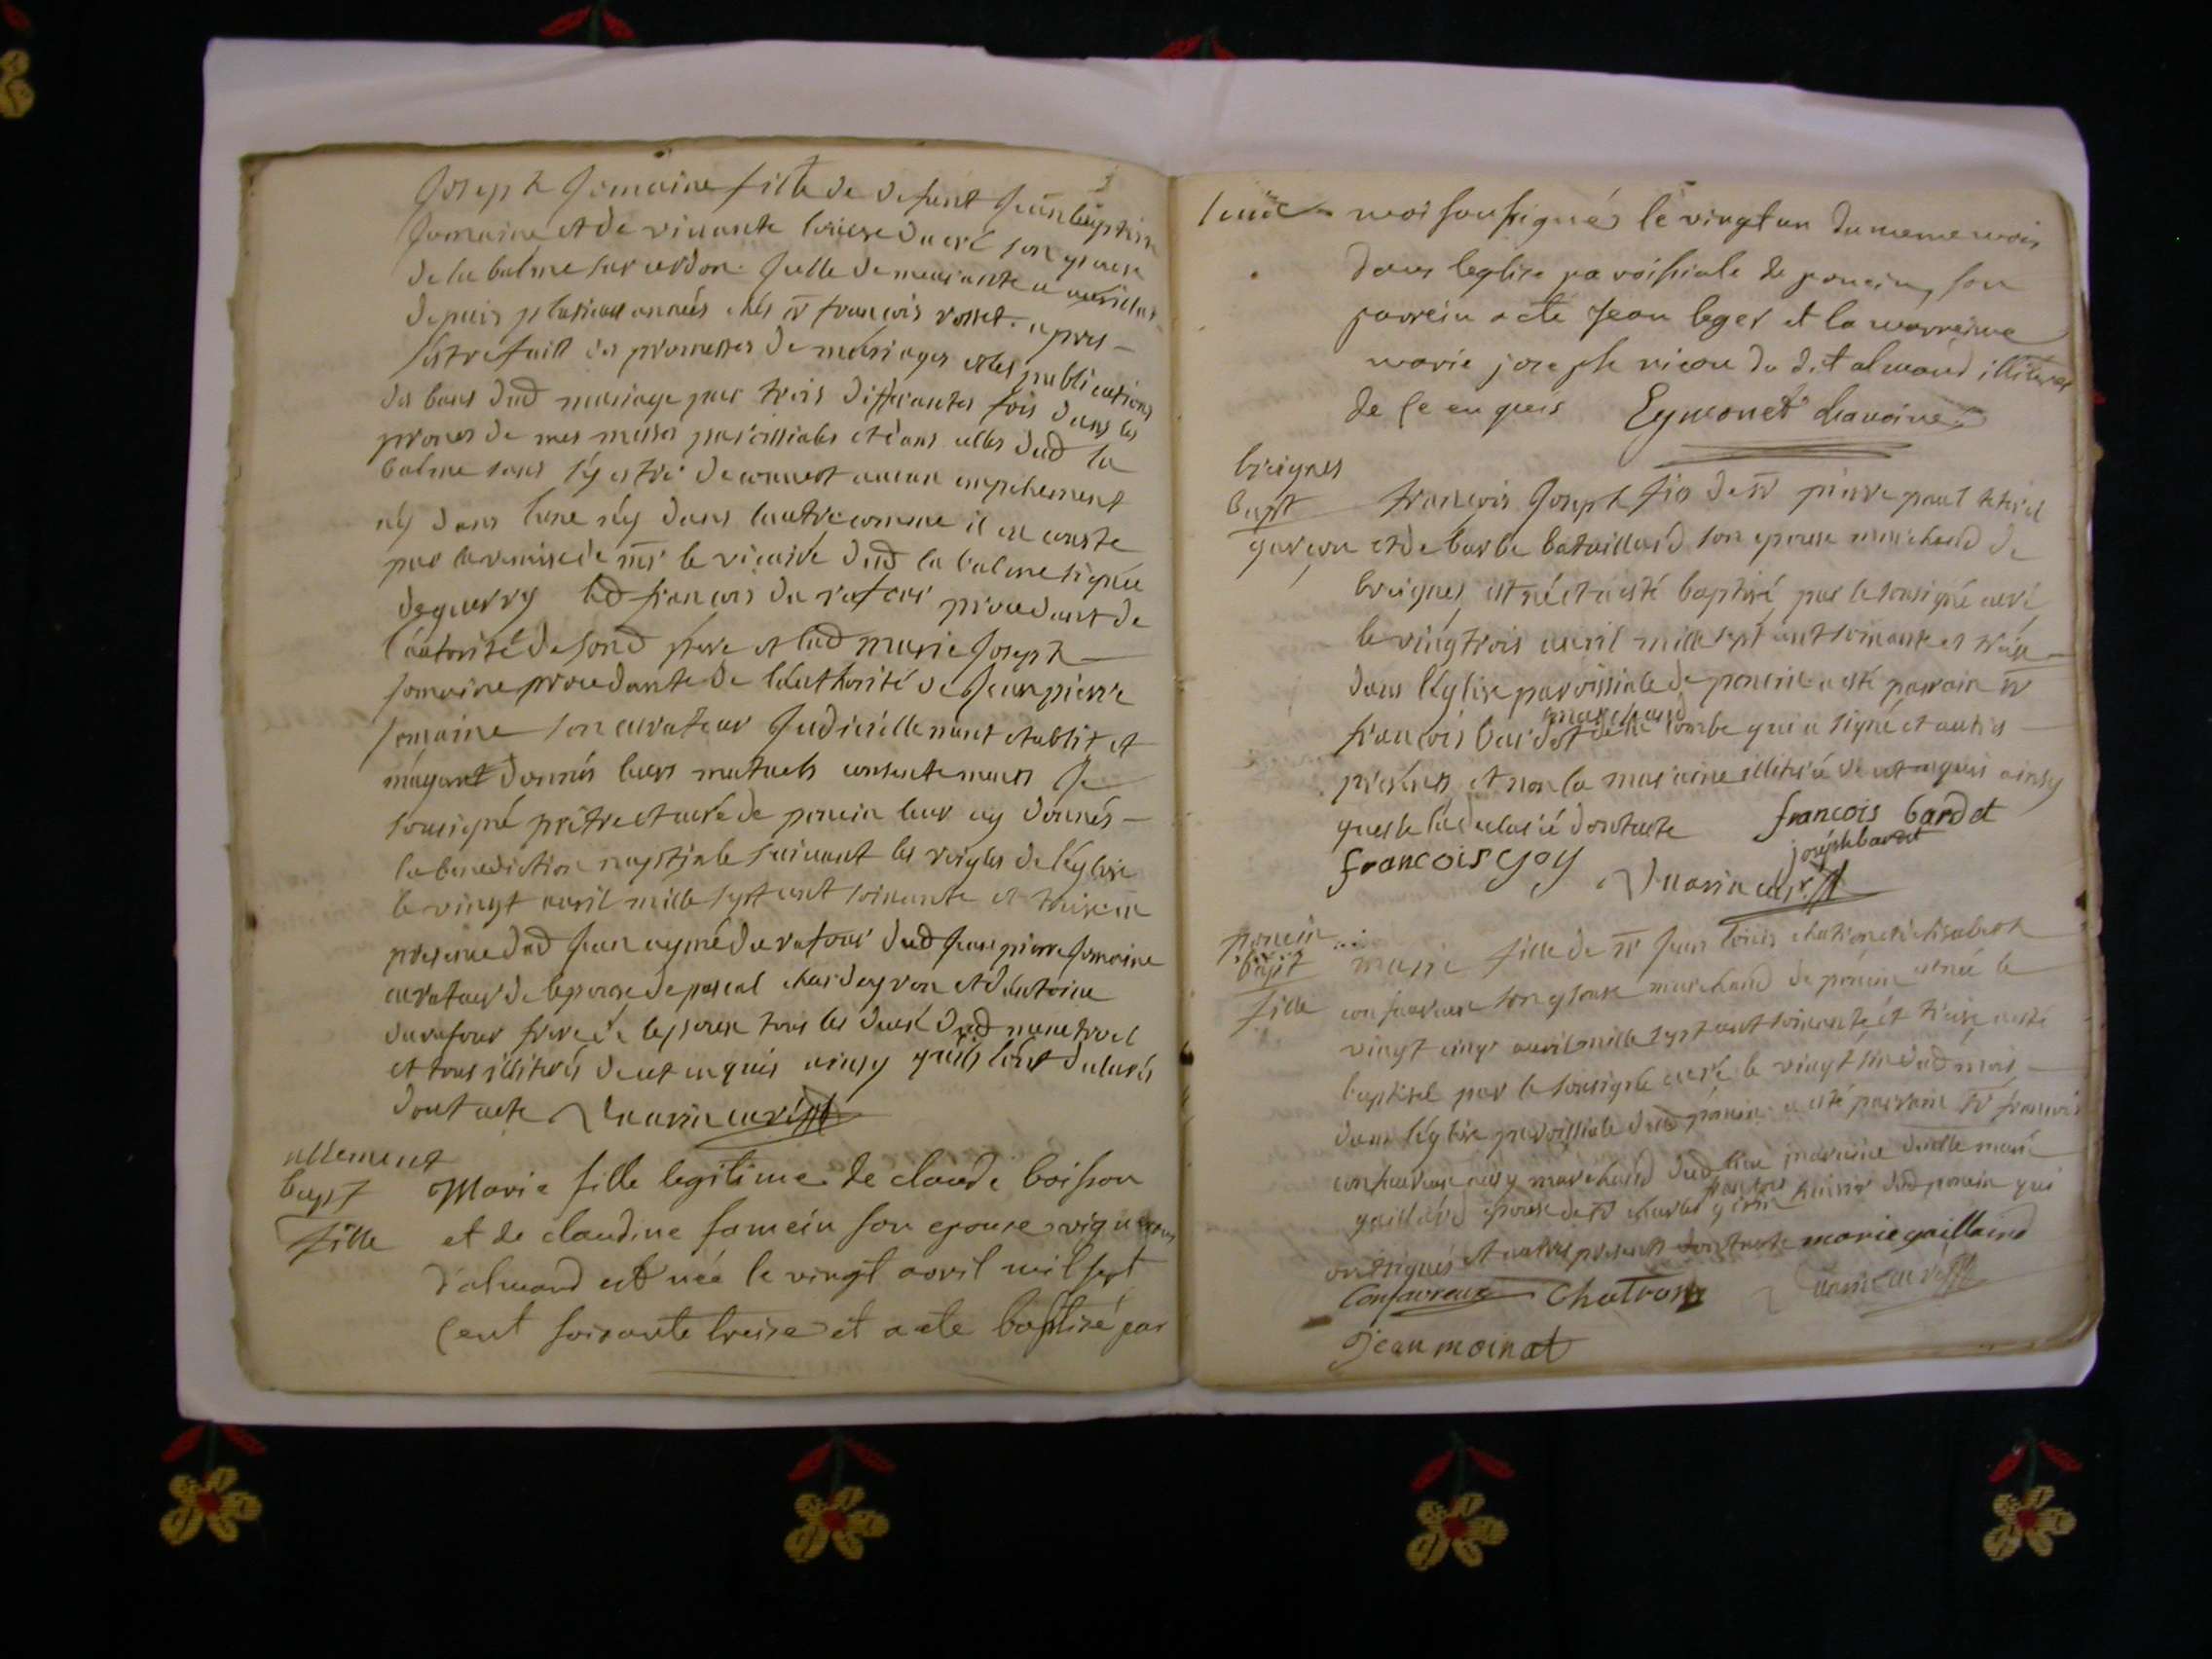 3
Joseph Jomaine fille de defunt Jean baptiste
Jomaine et de vincente son epouse
de la balme sur cerdon. Jcelle demeurante a
depuis plusieurs années chés sr françois rosset. apres
sestre faitt les promesses de mariages et les publications
des bans dud mariage par trois differantes fois dans les
prones de mes messes paroissiales et dans celles dud la
balme sans sÿ estre decouvert aucun empechement
nÿ dans lune nÿ dans lautre comme il en conste
par la remise de mr le vicaire dud la balme signée
deguerry led francois du rafour procedant de
l'autorité de sond pere et lad marie Joseph
Jomaine procedante de lauthorité de Jean pierre
Jomaine son curateur Judiciellement establit et
mayant donnés leurs mutuels consentements Je
soussigné prêtre et curé de poncin leur aÿ donnés
la benediction nuptiale suivant les reigles de léglise
le vingt avril mille sept cent soixante et treise en
presence dud Jean aymé du rafour dud Jean pierre Jomaine
curateur de lepouse de pascal chardeyron et dantoine
durafour frere de lepoux tous les deux dud menetruel
et tous illiterés de cet enquis ainsy quils lont declarés
dont acte curé
allement
bapt Marie fille legitime de claude boisson
fille et de claudine famein son epouse vignerons
d'almand est née le vingt avril mil sept
cent soixante treise et a ete baptisé par
moi soussignés le vingt un du meme mois
dans leglise paroissiale de poncin, son
parrein a eté Jean leger et la marreine
marie joseph nicou du dit almand illiteres
de ce enquis Eymonet
breignes
bapt françois Joseph fis de sr pierre paul
garçon et de barbe bataillard son epouse marchand de
breignes est né et a esté baptisé par le sousigné curé
le vingtrois avril mille sept cent soixante et treise
dans léglise paroissiale de poncin a esté parrain sr
marchand
françois bardet de la combe qui a signé et autres
présents et non la maraine illitérée de cet enquis ainsy
quelle la declaré dont acte francois bardet
francois Goy joseph bardet
curé
poncin
bapt marie fille de sr Jean louis et delisabeth
fille confavreux son epouse marchand de poncin est née le
vingt cinq avril mille sept cent soixante et treise a esté
baptisée par le sousigné curé le vingt six dud mois
dans léglise paroissiale dud poncin a esté parrain sr francois
confavreux marchand dud lieu maraine delle marie
gaillard epouse de sr charles huissier dud poncin qui
ont signés et autres presents dont acte marie gaillard
Confavreux Chatron curé
Jean moinat